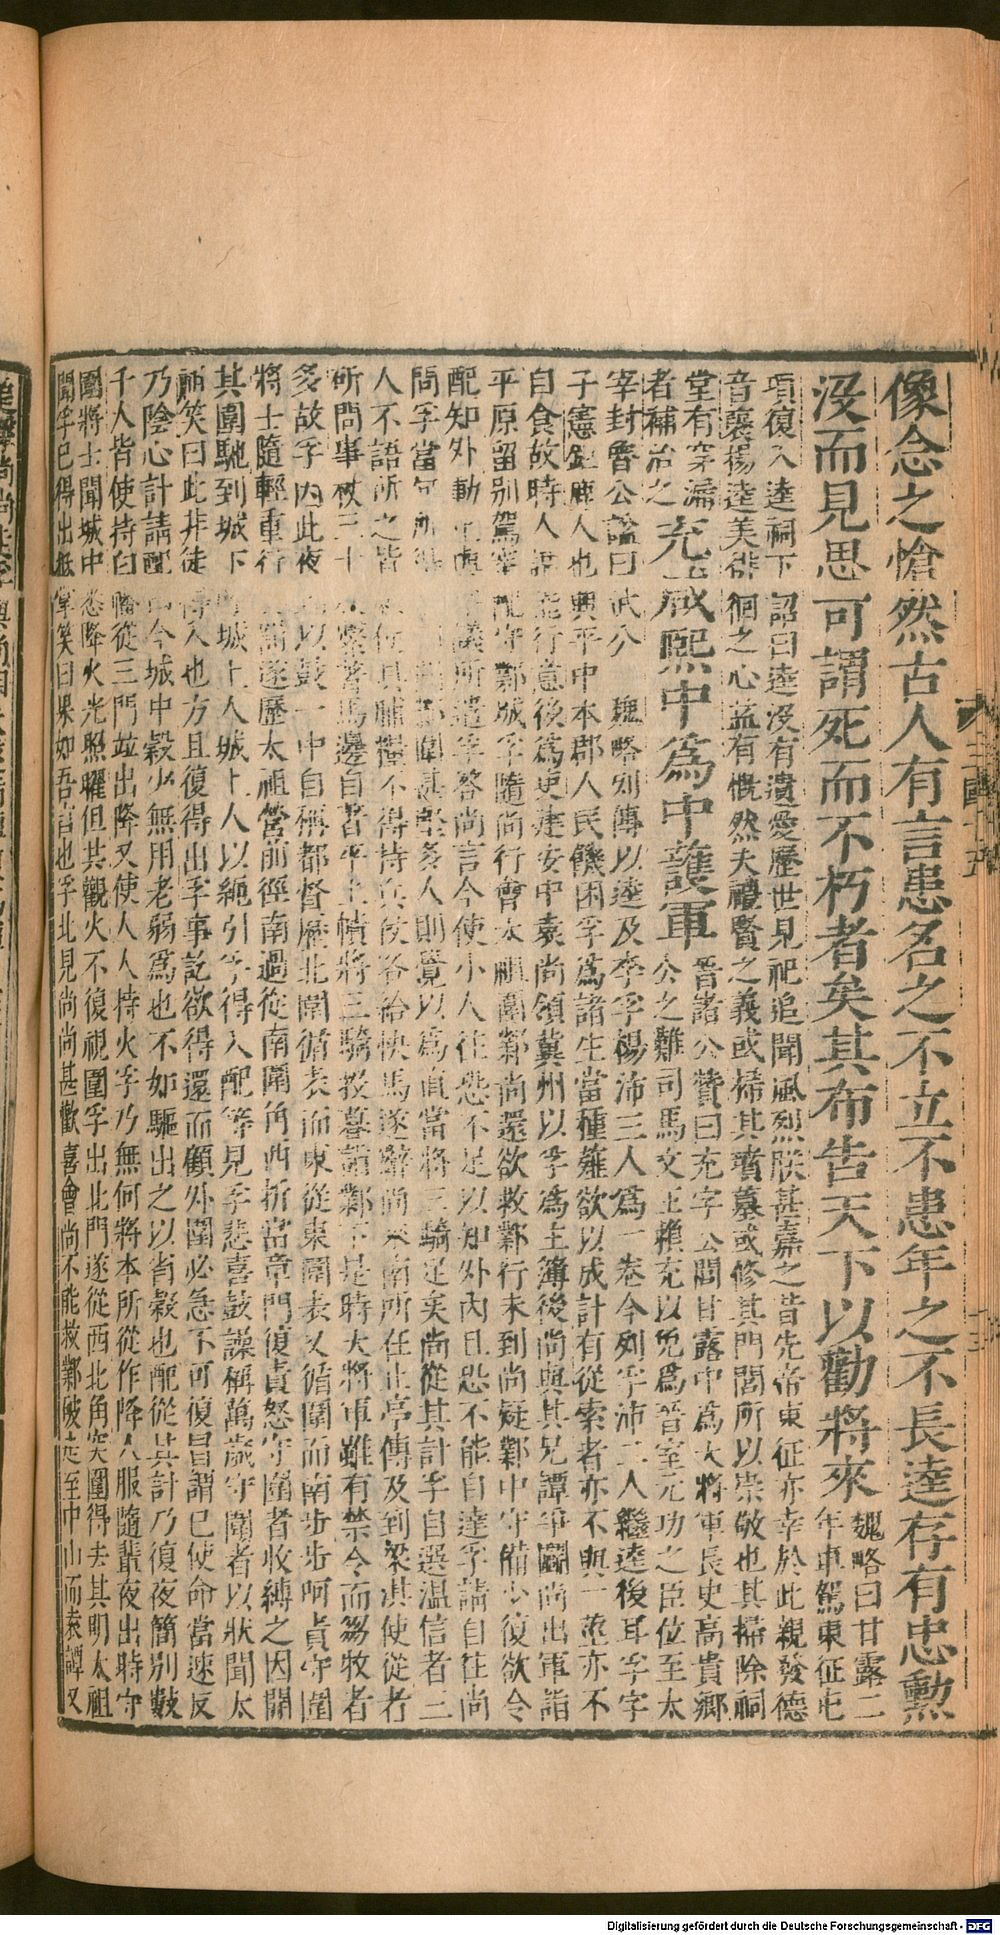 像念之愴然古人有言患名之不立不患年之不長逵存有忠勲
沒而見思可謂死而不朽者矣其布告天下以勸將來魏略曰甘露二
年車駕東征屯
項復入逵祠下詔曰逵沒有遺愛歷世見祀追聞風烈朕甚嘉之昔先帝東征亦幸於此親發德
音襃揚逵美徘徊之心益有慨然夫禮賢之義或掃其墳墓或修其門閭所以崇敬也其掃除祠
堂有穿漏
者補治之
充咸熙中爲中護軍
晉諸公贊曰充字公閭甘露中爲大將軍長史高貴鄉
公之難司馬文王賴充以免爲晉室元功之臣位至太
宰封魯公諡曰武公 魏略列傳以逵及李孚楊沛三人爲一卷今列孚沛二人繼逵後耳孚字
子憲鉅鹿人也興平中本郡人民饑困孚爲諸生當種薤欲以成計有從索者亦不與一莖亦不
自食故時人謂能行意後爲吏建安中袁尚領冀州以孚爲主簿後尚與其兄譚爭鬭尚出軍詣
平原留別駕審配守鄴城孚隨尚行會太祖圍鄴尚還欲救鄴行未到尚疑鄴中守備少復欲令
配知外動止與孚議所遣孚答尚言今使小人往恐不足以知外內且恐不能自達孚請自往尚
問孚當何所得孚曰聞鄴圍甚堅多人則覺以爲直當將三騎足矣尚從其計孚自選溫信者三
人不語所之皆敕使具脯糧不得持兵仗各給快馬遂辭尚來南所在止亭傳及到梁淇使從者
斫問事杖三十枚繫著馬邊自著平上幘將三騎投暮詣鄴下是時大將軍雖有禁令而芻牧者
多故孚因此夜到以鼓一中自稱都督歷北圍循表而東從東圍表又循圍而南步步呵責守圍
將士隨輕重行其罰遂歷太祖營前徑南過從南圍角西折當章門復責怒守圍者收縛之因開
其圍馳到城下呼城上人城上人以繩引孚得入配等見孚悲喜鼓譟稱萬歲守圍者以狀聞太
祖笑曰此非徒得入也方且復得出孚事訖欲得還而顧外圍必急不可復冒謂已使命當速反
乃陰心計請配曰今城中穀少無用老弱爲也不如驅出之以省穀也配從其計乃復夜簡別數
千人皆使持白幡從三門並出降又使人人持火孚乃無何將本所從作降人服隨輩夜出時守
圍將士聞城中悉降火光照曜但其觀火不復視圍孚出北門遂從西北角突圍得去其明太祖
聞孚已得出抵掌笑曰果如吾言也孚北見尚尚甚歡喜會尚不能救鄴破走至中山而袁譚又
Digitalisierung gefördert durch die Deutsche Forschungsgemeinschaft - DFG